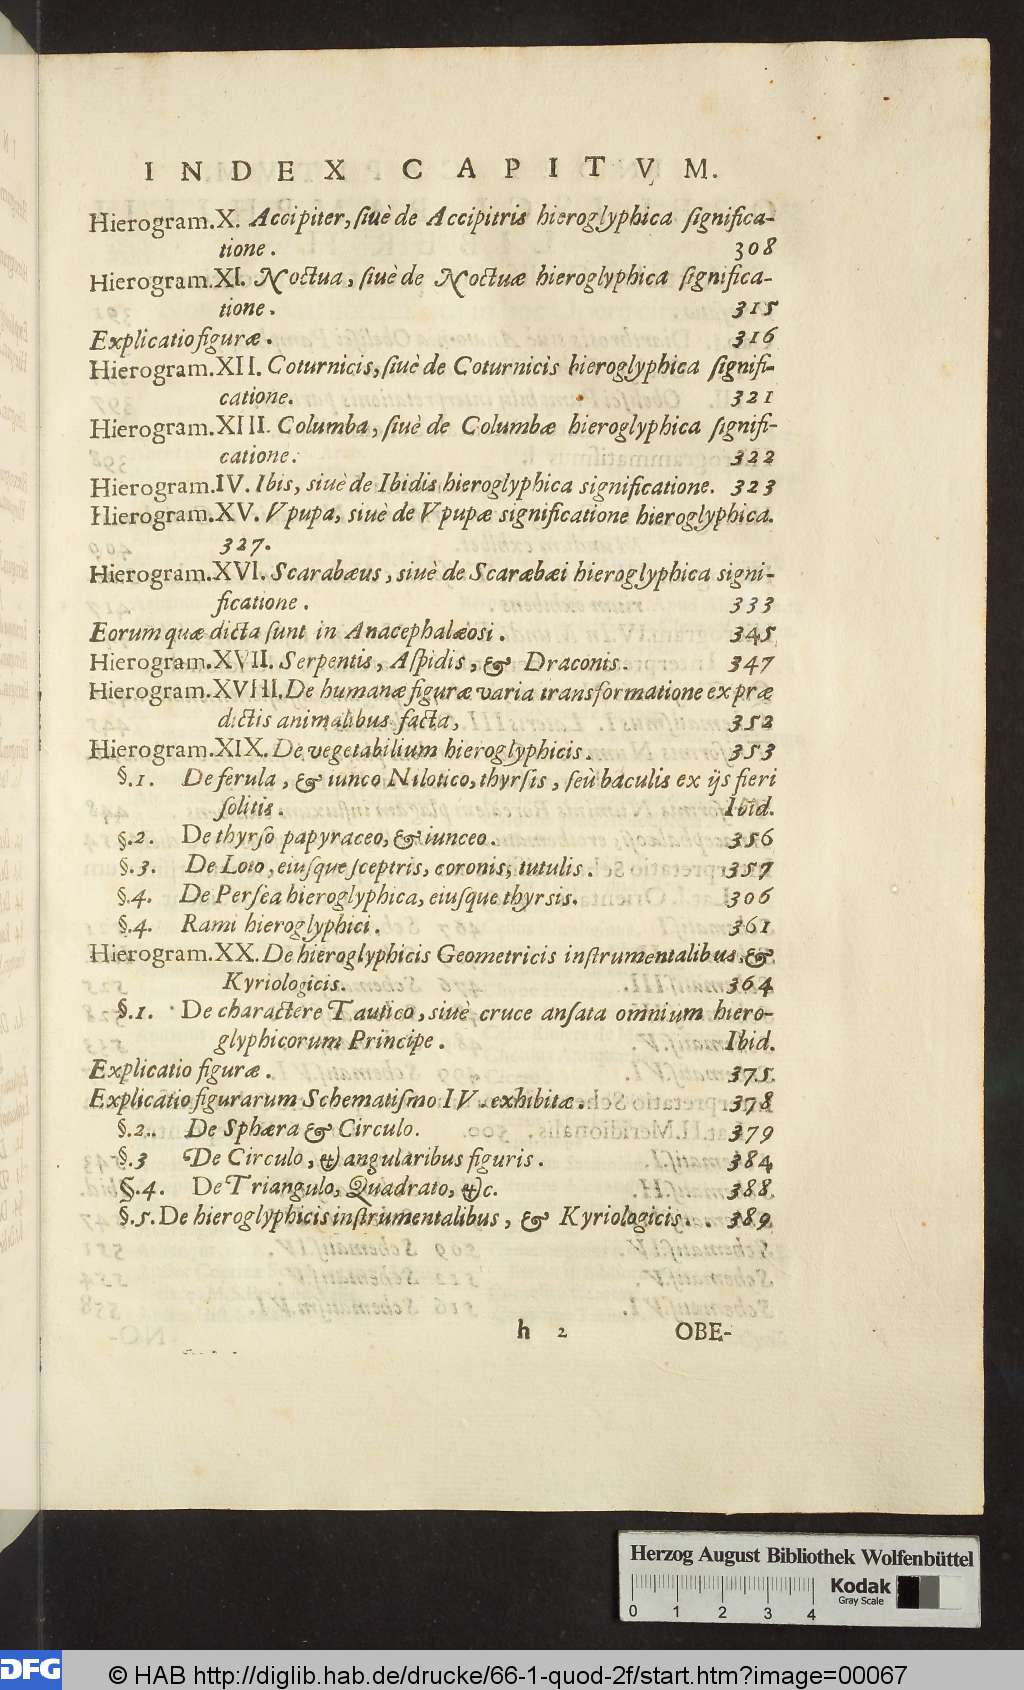 INDEX CAPITVM.
Hierogram.X. Accipiter, ſiuè de Accipitris hieroglyphica ſignifica-
tione. 308
Hierogram.XI. Noctua, ſiuè de Noctuæ hieroglyphica ſignifica-
tione. 315
Explicatio figuræ. 316
Hierogram.XII. Coturnicis, ſiuè de Coturnicis hieroglyphica ſignifi-
catione. 321
Hierogram.XIII. Columba, ſiuè de Columbæ hieroglyphica ſignifi-
catione. 322
Hierogram.IV. Ibis, siuè de Ibidis hieroglyphica significatione. 323
Hierogram.XV. Vpupa, siuè de Vpupæ significatione hieroglyphica.
327.
Hierogram.XVI. Scarabæus, siuè de Scarabæi hieroglyphica signi-
ficatione. 333
Eorum quæ dicta ſunt in Anacephalæosi. 345
Hierogram.XVII. Serpentis, Aſpidis, & Draconis. 347
Hierogram.XVIII. De humanæ figuræ varia transformatione ex præ
dictis animalibus facta, 352
Hierogram.XIX. De vegetabilium hieroglyphicis. 353
§.1. De ferula, & iunco Nilotico, thyrſis, ſeù baculis ex ijs fieri
ſolitis. Ibid.
§.2. De thyrſo papyraceo, & iunceo. 356
§.3. De Loto, eiuſque ſceptris, coronis, tutulis. 357
§.4. De Perſea hieroglyphica, eiuſque thyrsis. 306
§.4. Rami hieroglyphici. 361
Hierogram.XX. De hieroglyphicis Geometricis inſtrumentalibus, &
Kyriologicis. 364
§.1. De charactere Tautico, siuè cruce anſata omnium hiero-
glyphicorum Principe. Ibid.
Explicatio figuræ. 375.
Explicatio figurarum Schematiſmo IV. exhibitæ. 378
§.2.. De Sphæra & Circulo. 379
§.3 De Circulo, & angularibus figuris. 384
§.4. De Triangulo, Quadrato, &c. 388.
§.5. De hieroglyphicis inſtrumentalibus, & Kyriologicis. . 389
h 2 OBE-
Herzog August Bibliothek Wolfenbüttel
Kodak
Gray Scale
0 1 2 3 4
DFG © HAB http://diglib.hab.de/drucke/66-1-quod-2f/start.htm?image=00067